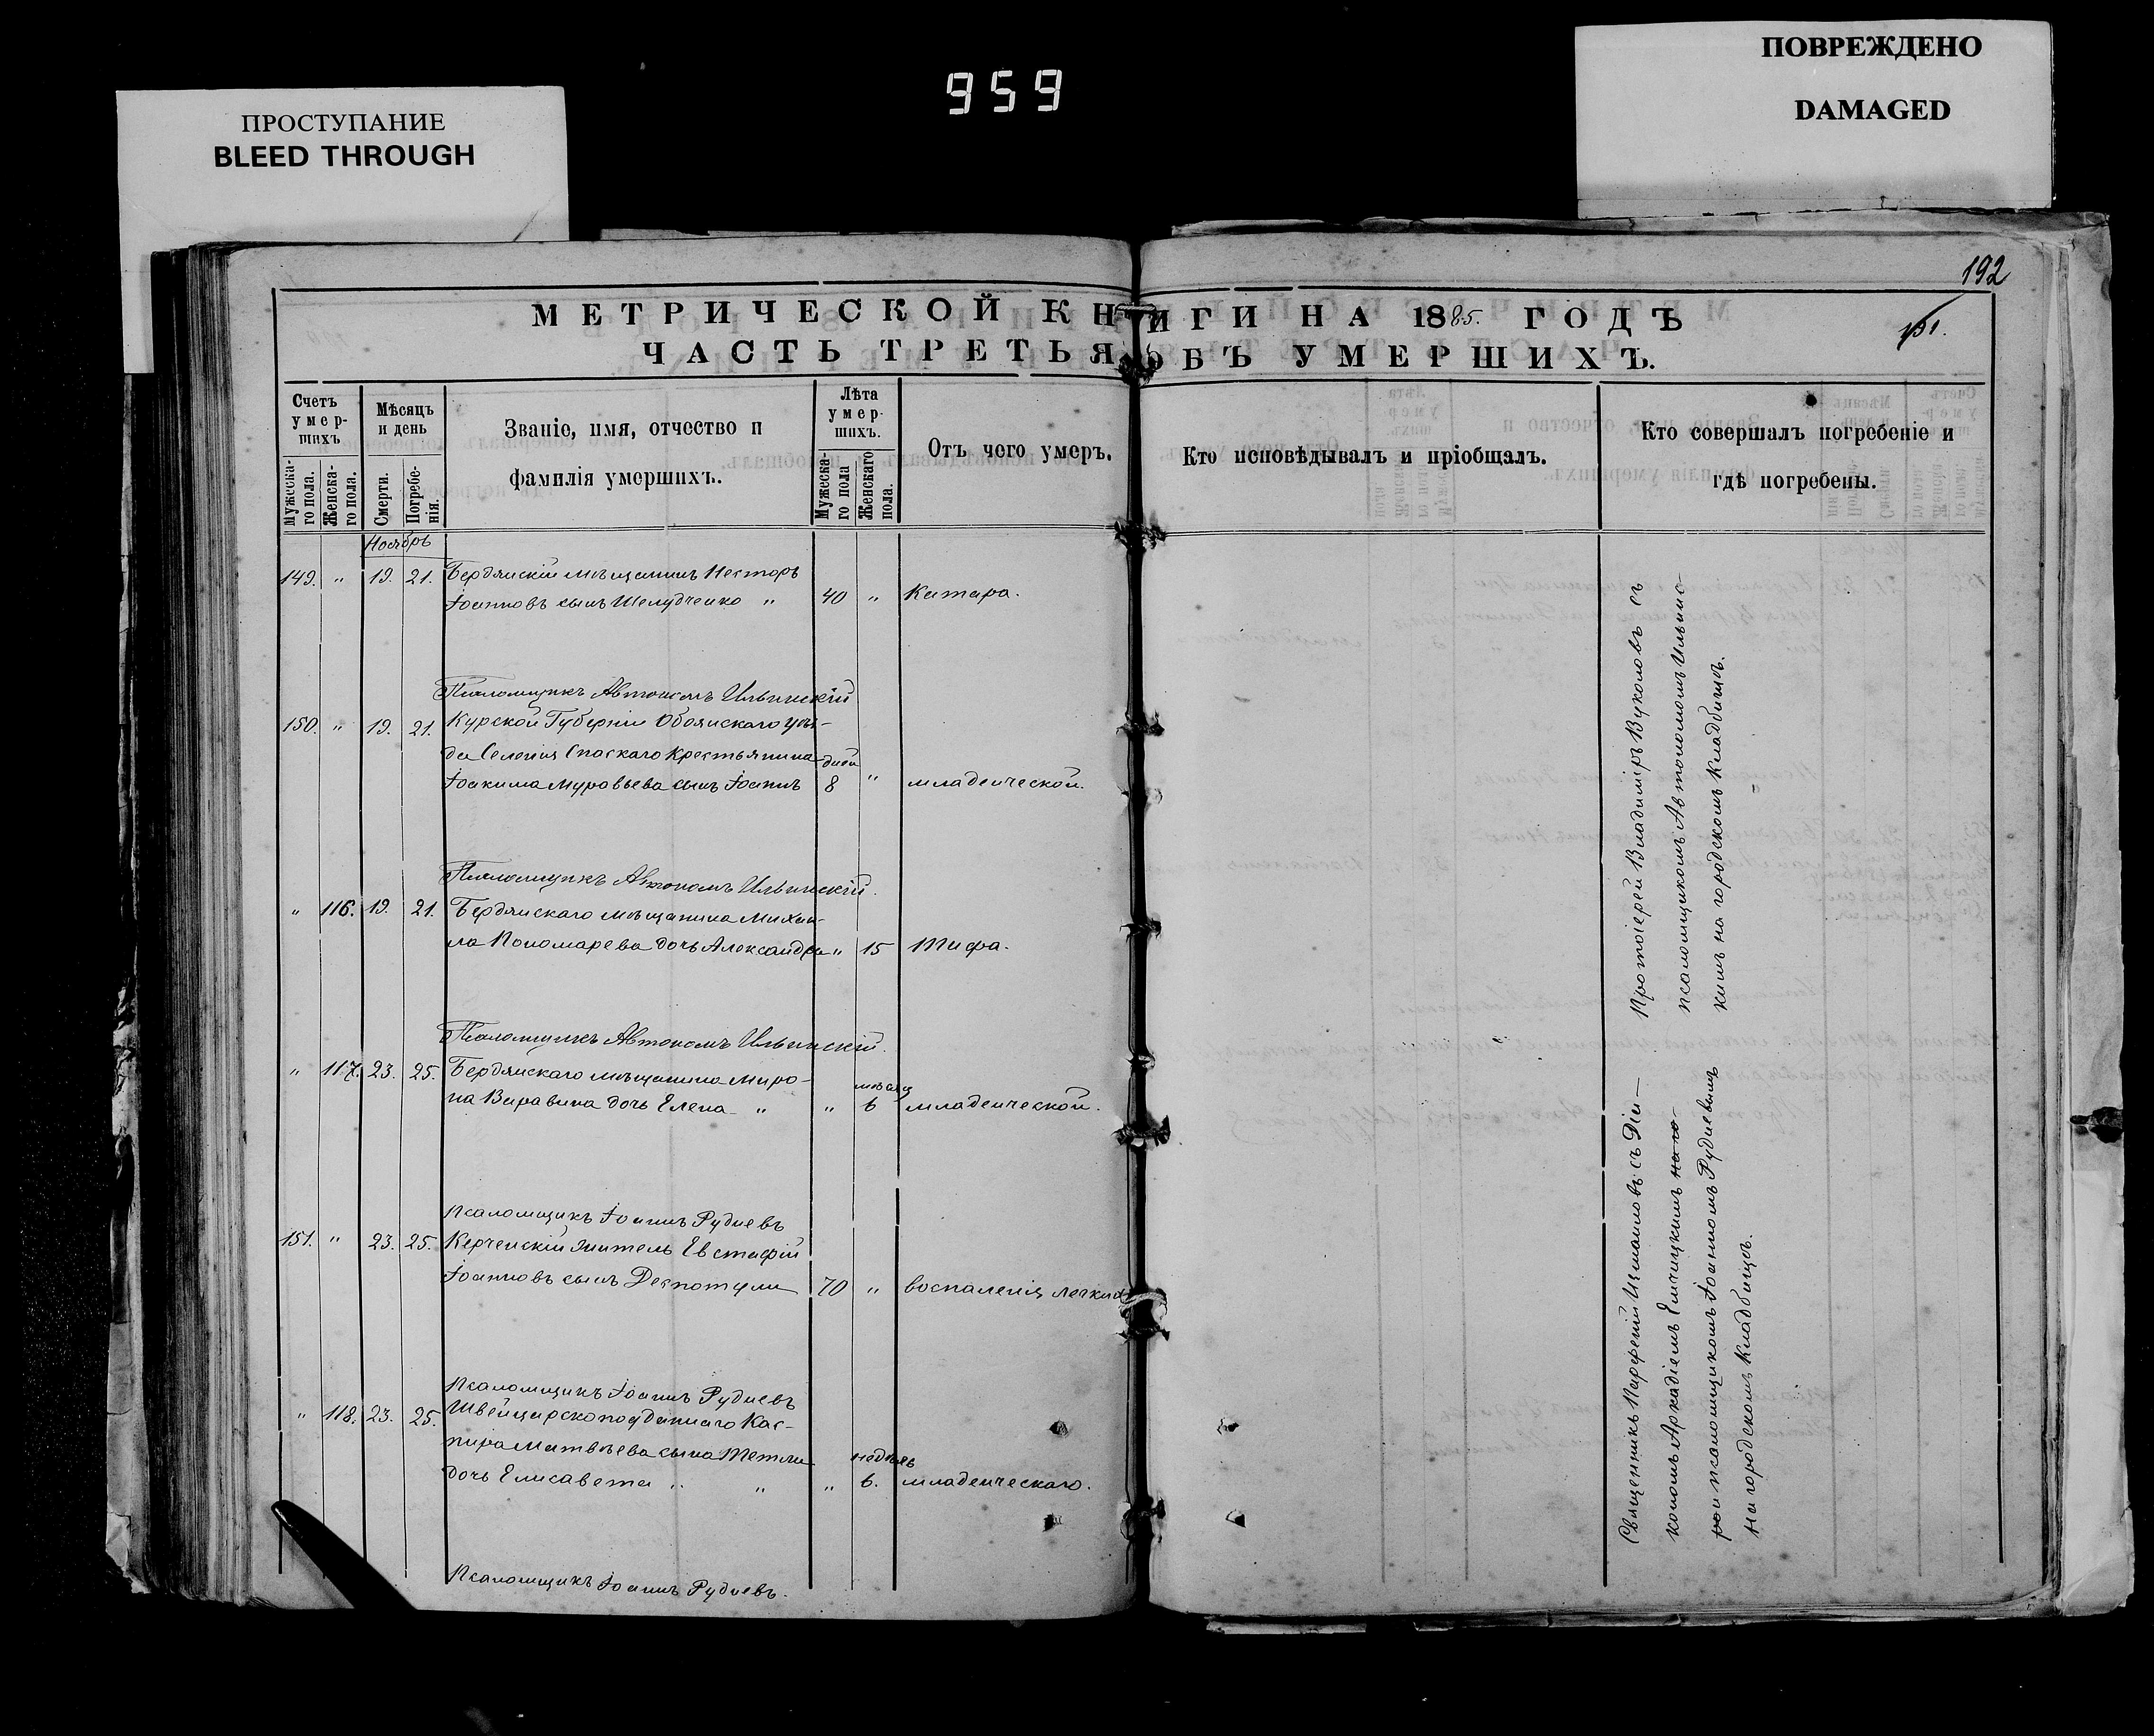 959
ПРОСТУПАНИЕ
BLEED THROUGH
ПОВРЕЖДЕНО
DAMAGED
192
МЕТРИЧЕСКОЙ КНИГИ НА 1885. ГОДЪ
ЧАСТЬ ТРЕТЬЯ ОБЪ УМЕРШИХЪ.
Счетъ умер-шихъ
Мужеска-го пола.
Женска-го пола.
Мѣсяцъ и день
Смерти.
Погребе-нія.
Званіе, имя, отчество и
фамилія умершихъ.
Лѣта умер-шихъ.
Мужеска-го пола
Женскаго пола.
Отъ чего умеръ.
Кто исповѣдывалъ и пріобщалъ.
Кто совершалъ погребеніе и
гдѣ погребены.
Ноябрь
149. " 19. 21. Бердянскій мѣщанинъ Несторъ
Іоанновъ сынъ Шелудченко " 40 " Катара.
Псаломщикъ Автономъ Ильинскій
150. " 19. 21. Курской Губерніи Обоянскаго уѣз-
да Селенія Спаскаго Крестьянина дней
Іоакима Муровьева сынъ Іоаннъ 8 " младенческой.
Псаломщикъ Автономъ Ильинскій.
" 116. 19. 21. Бердянскаго мѣщанина Михаи-
ла Пономарева дочь Александра " 15 Тифа.
Псаломщикъ Автономъ Ильинскій.
" 117. 23. 25. Бердянскаго мѣщанина Миро- мѣсяц
на Варавина дочь Елена " " 6 младенческой.
Псаломщикъ Іоаннъ Рудневъ
151. " 23. 25. Керченскій житель Евстафій
Іоанновъ сынъ Деспотули 70 " воспаленія легкихъ
Псаломщикъ Іоаннъ Рудневъ
" 118. 23. 25. Швейцарскоподданнаго Кас-
пира Матвѣева сына Тетли недѣль
дочь Елисавета " " " 6. младенческаго.
Псаломщикъ Іоаннъ Рудневъ.
Протоіерей Владиміръ Вуколовъ съ
псаломщикомъ Автономомъ Ильинс-
кимъ на городскомъ кладбищѣ.
Священникъ Парфеній съ Діа-
кономъ Аркадіемъ на го-
ро и псаломщикомъ Іоанномъ Рудневымъ
на городскомъ кладбищѣ.